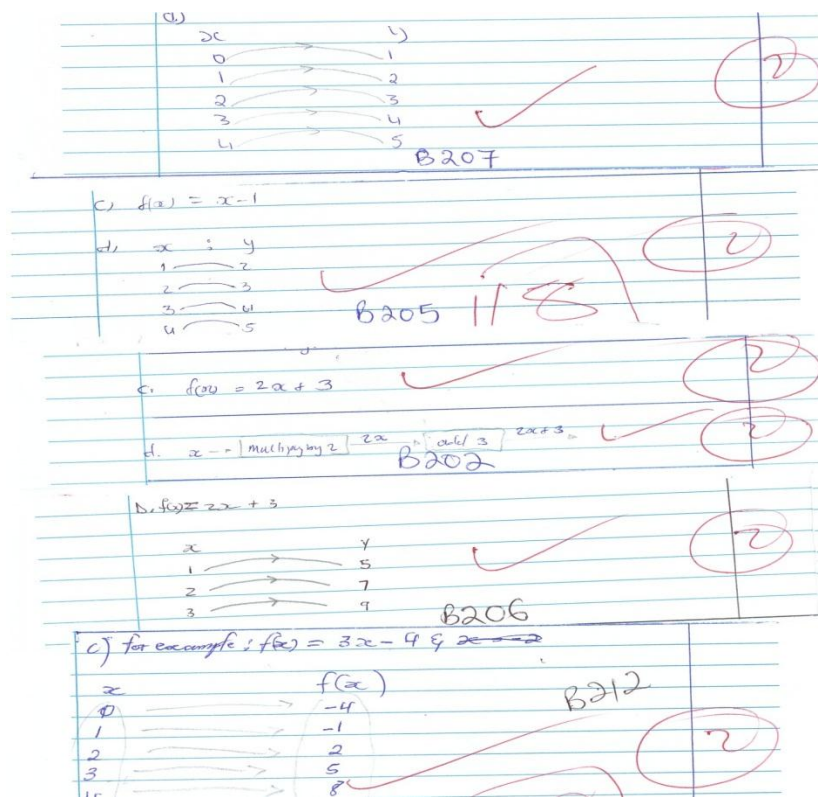 a)
x y
0 1
1 2
2 3
3 4
4 5
B207
2
c) f(x) = x-1
d, x : y
1 2
2 3
3 4
4 5
B205
118
2
c. f(x) = 2x + 3
2
d. x multiply by 2 2x add 3 2x+3
B202
2
b. f(x) = 2x + 3
x y
1 5
2 7
3 9
B206
2
c) for example: f(x) = 3x - 4 &
x f(x)
0 -4
1 -1
2 2
3 5
4 8
B212
2